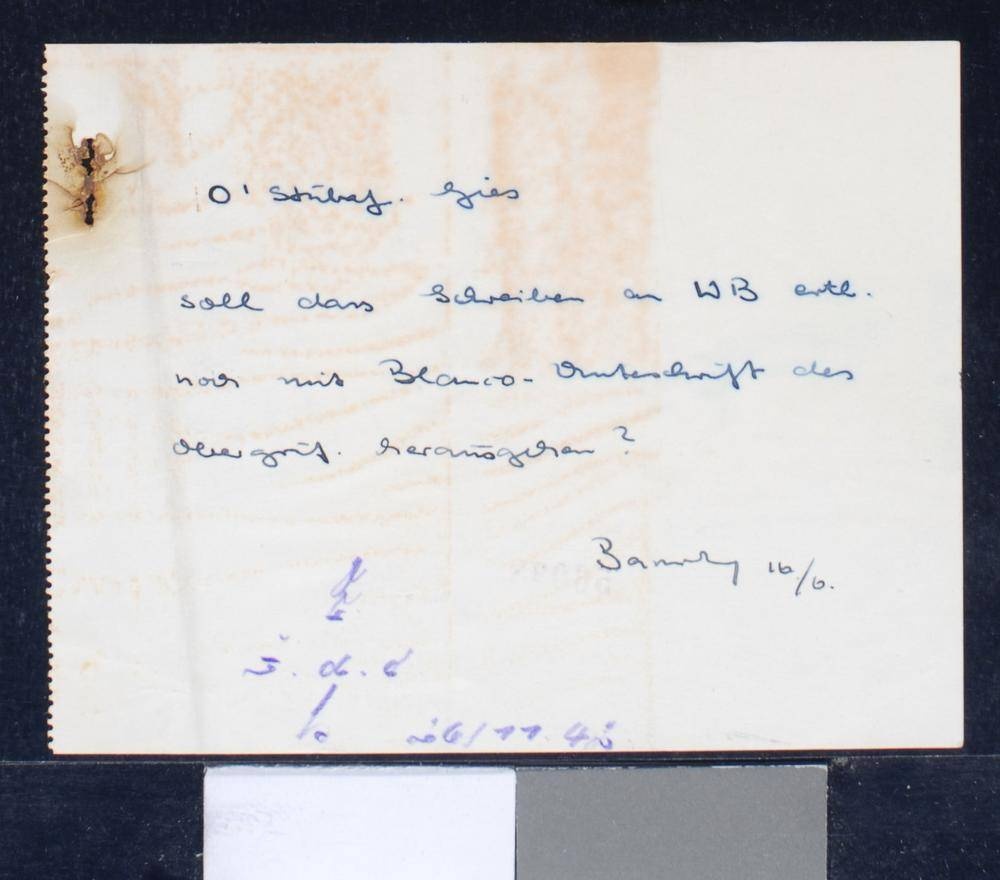 O'Stubaf. Gies
soll dass Schreiben an WB ertl.
noch mit Blanco-Unterschrift des
Obergruf. herausgehen?
16/6.
Z.d.A
26/11.42